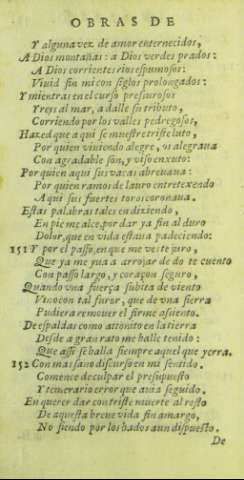 OBRAS DE
Y alguna vez de amor enternecidos,
A Dios montañas: a Dios verdes prados:
A Dios corrientes rios espumosos:
Viuid sin mi con siglos prolongados:
Y mientras en el curso presurosos
Yreys al mar, a dalle su tributo,
Corriendo por los valles pedregosos,
Hazed que aqui se muestre triste luto,
Por quien viuiendo alegre, os alegraua
Con agradable son, y viso enxuto:
Por quien aqui sus vacas abreuaua:
Por quien ramos de lauro entretexendo
Aqui sus fuertes toros coronaua.
Estas palabras tales en diziendo,
En pie me alce, por dar ya fin al duro
Dolor, que en vida estaua padeciendo:
151 Y por el passo, en que me veste juro,
Que ya me yua a arrojar de do te cuento
Con passo largo, y coraçon seguro,
Quando vna fuerça subita de viento
Vino con tal furor, que de vna sierra
Pudiera remouer el firme assiento.
De espaldas como attonito en la tierra
Desde a gran rato me halle tenido:
Que assi se halla siempre aquel que yerra.
152 Con mas sano discurso en mi sentido
Comence de culpar el presupuesto
Y temerario error que auia seguido.
En querer dar con triste muerte al resto
De aquesta breue vida fin amargo,
No siendo por los hados aun dispuesto.
De